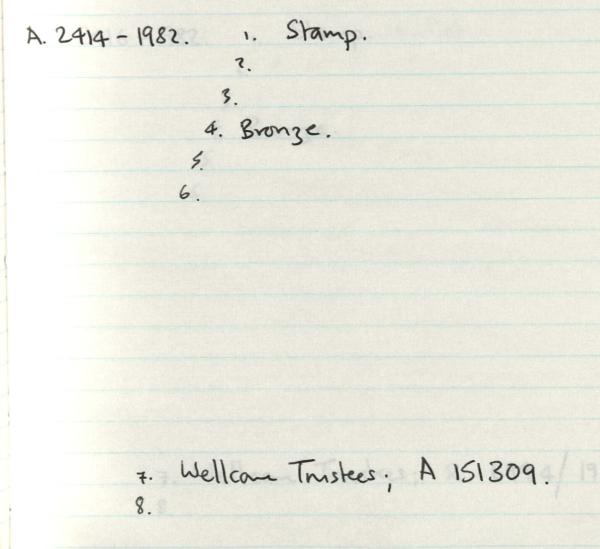 A. 2414 - 1982. 1. Stamp.
2.
3.
4. Bronze.
5.
6.
7. Wellcome Trustees; A 151309.
8.